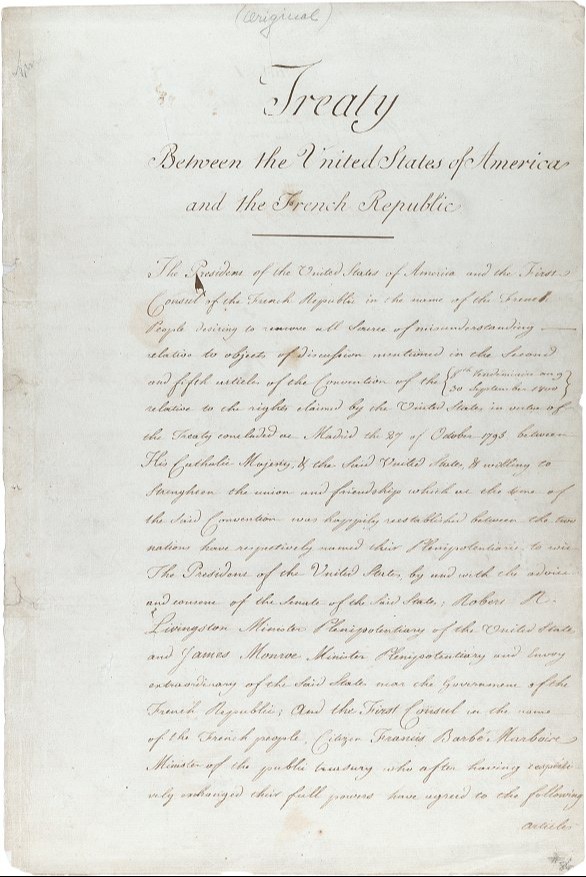 (Original)
Treaty
Between the United States of America
and the French Republic
The President of the United States of America and the First
Consul of the French Republic in the name of the French
People desiring to remove all Source of misunderstanding
relative to objects of discussion mentioned in the Second
and fifth articles of the Convention of the { 8th Vendemiaire an 9
30 September 1800 }
relative to the rights claimed by the United States in virtue of
the Treaty concluded at Madrid the 27 of October 1795 between
His Catholic Majesty, & the Said United States, & willing to
Strengthen the union and friendship which at the time of
the Said Convention was happily reestablished between the two
nations have respectively named their Plenipotentiaries to wit
The President of the United States, by and with the advice
and consent of the Senate of the Said States; Robert R.
Livingston Minister Plenipotentiary of the United States
and James Monroe Minister Plenipotentiary and Envoy
extraordinary of the Said States near the Government of the
French Republic; And the First Consul in the name
of the French people, Citizen Francis Barbé Marbois
Minister of the public treasury who after having respecti
vely exchanged their full powers have agreed to the following
articles